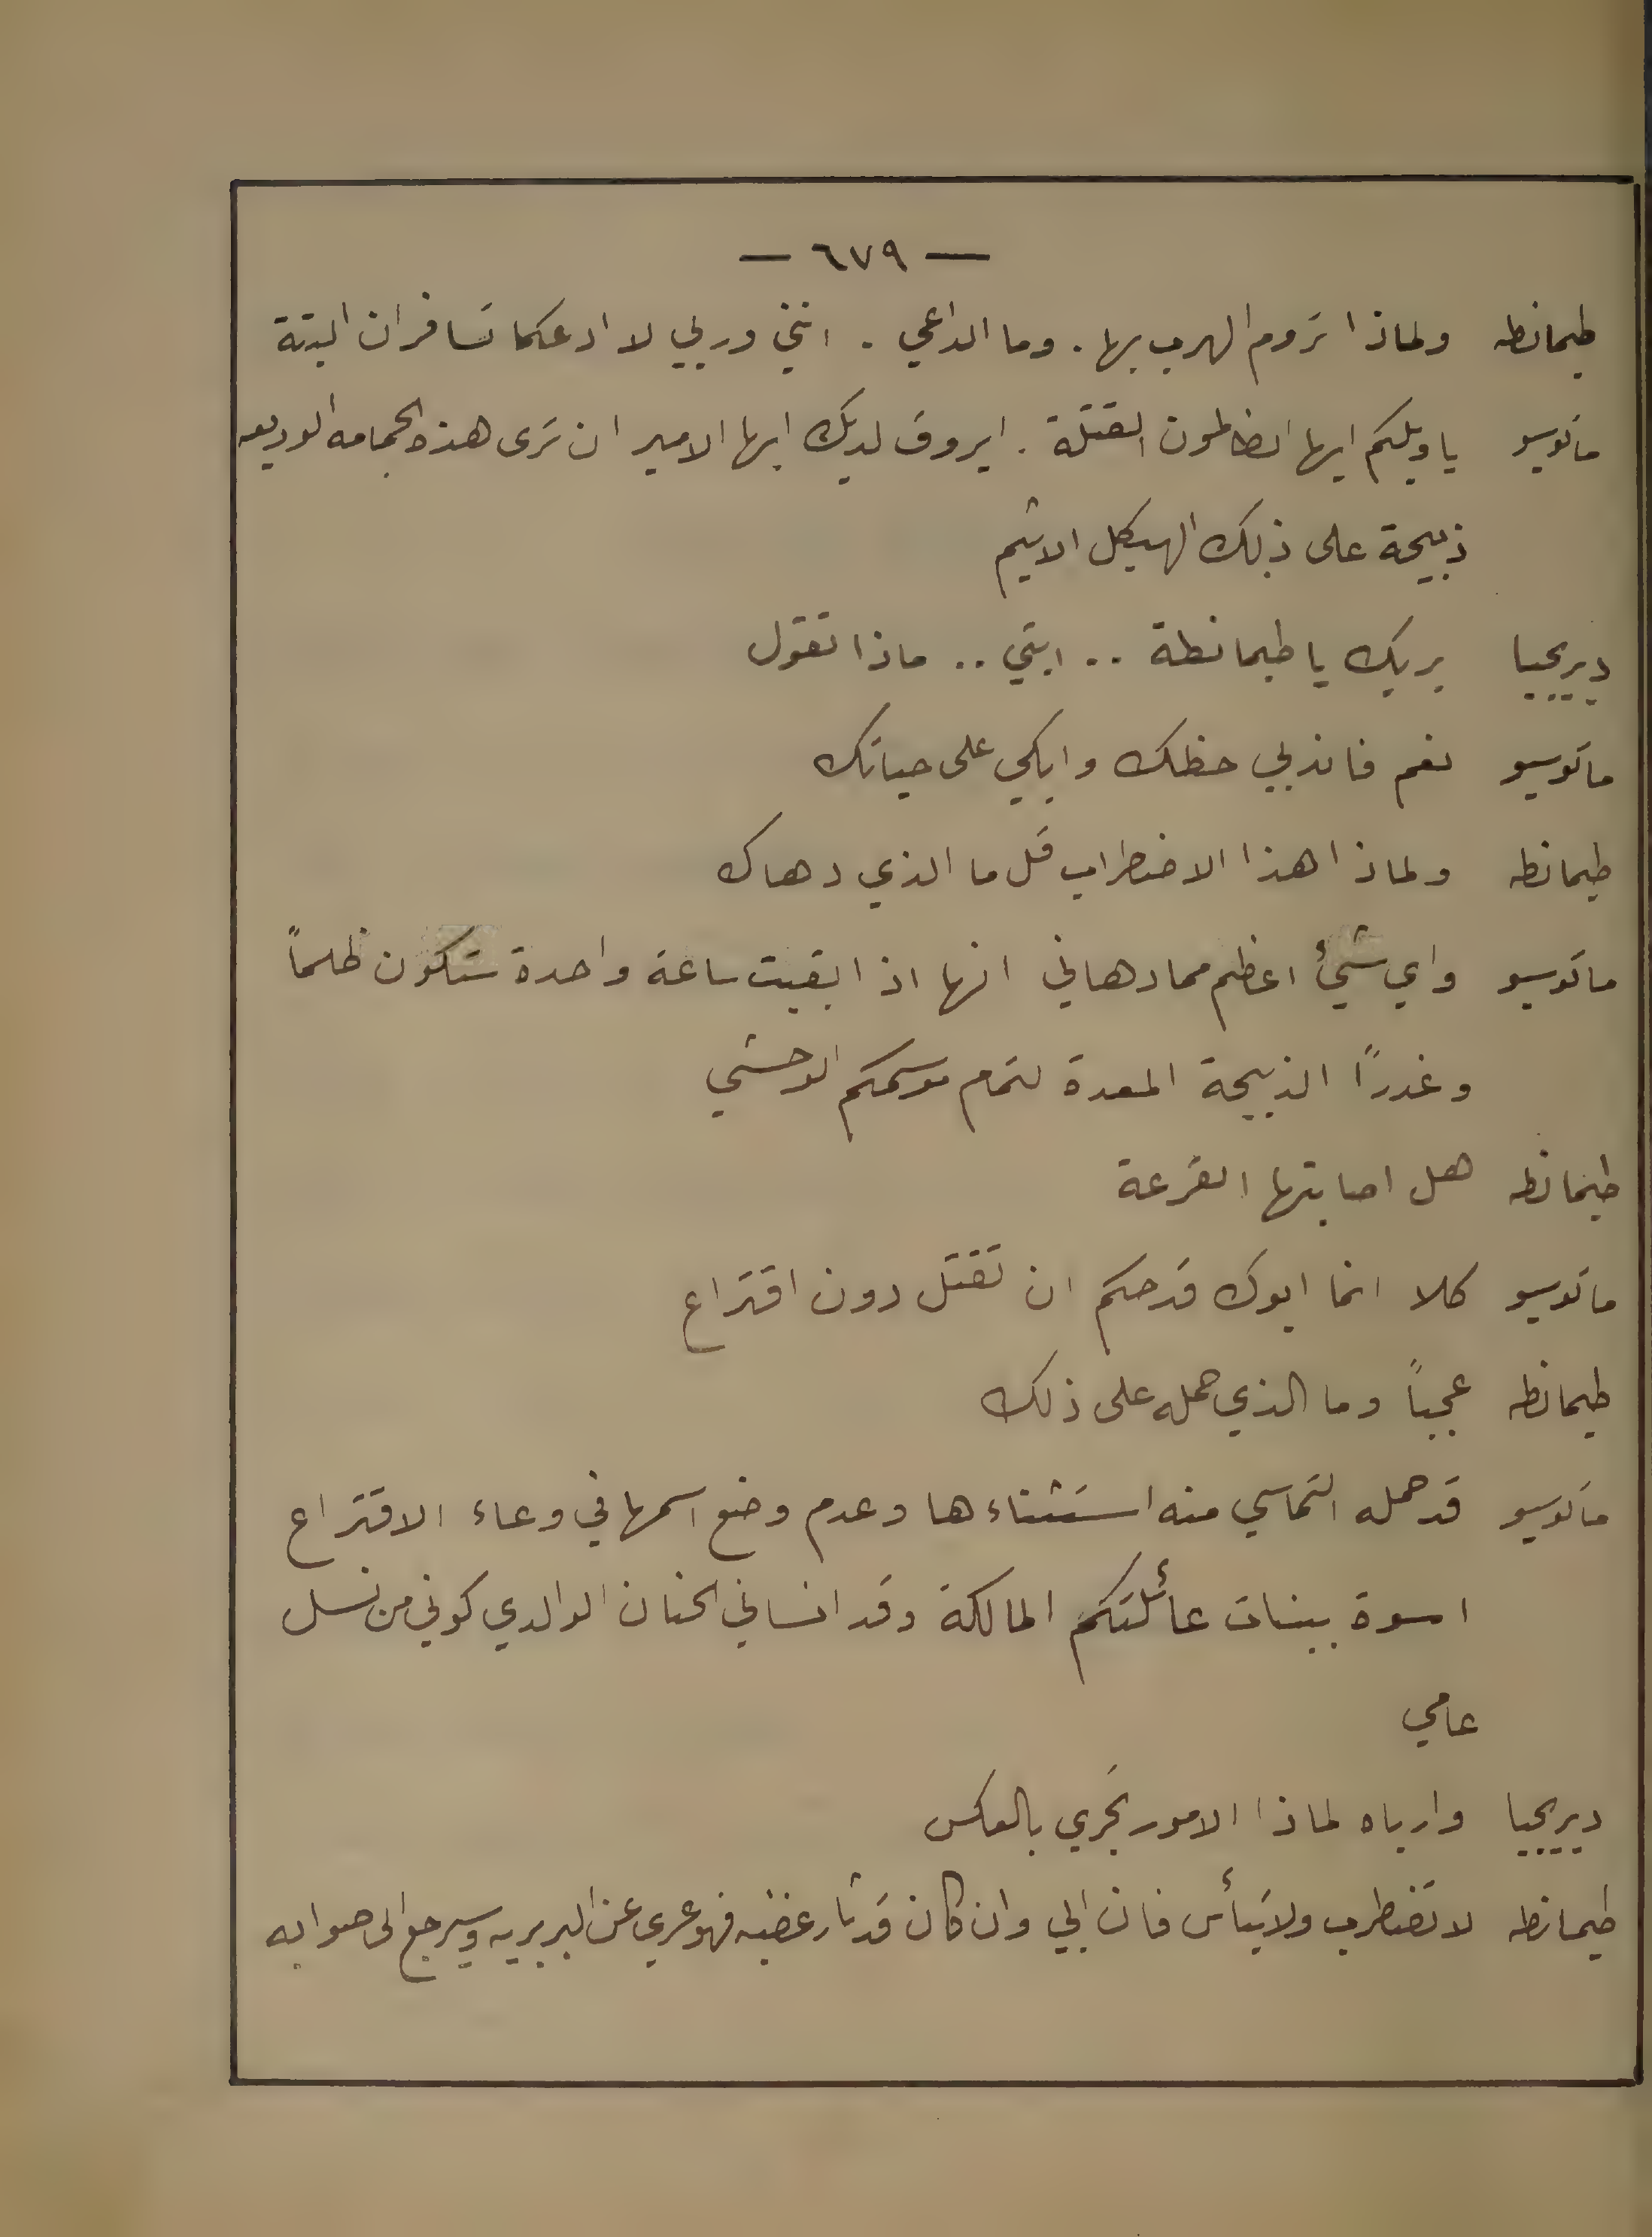 — ٦٧٩ —
طيمانطه ولماذا تروم الهرب بها . وما الداعي . انني وربي لا ادعكما تسافران البتة
ماتوسيو يا ويلكم ايها الظالمون القتلة . ايروق لديك ايها الامير ان ترى هذه الحمامه الوديعه
ذبيحة على ذلك الهيكل الاثيم
ديريجيا بربك يا طيمانطة .. ابتي .. ماذا تقول
ماتوسيو نعم فاندبي حظك وابكي على حياتك
طيمانطه ولماذا هذا الاضطراب قل ما الذي دهاك
ماتوسيو واي شيئ اعظم مما دهاني انها اذا بقيت ساعة واحدة ستكون ظلماً
وغدراً الذبيحة المعدة لتمام موسمكم الوحشي
طيمانطه هل اصابتها القرعة
ماتوسيو كلا انما ابوك قد حكم ان تقتل دون اقتراع
طيمانطه عجباً وما الذي حمله على ذلك
ماتوسيو قد حمله التماسي منه استثناءها وعدم وضع اسمها في وعاء الاقتراع
اسوة ببنات عائلتكم المالكة وقد انساني الحنان الوالدي كوني من نسل
عامي
ديريجيا وارباه لماذا الامور تجري بالعكس
طيمانطه لا تضطرب ولا تيأس فان ابي وان كان قد ثار غضبه فهو عري عن البربريه وسيرجع الى صوابه